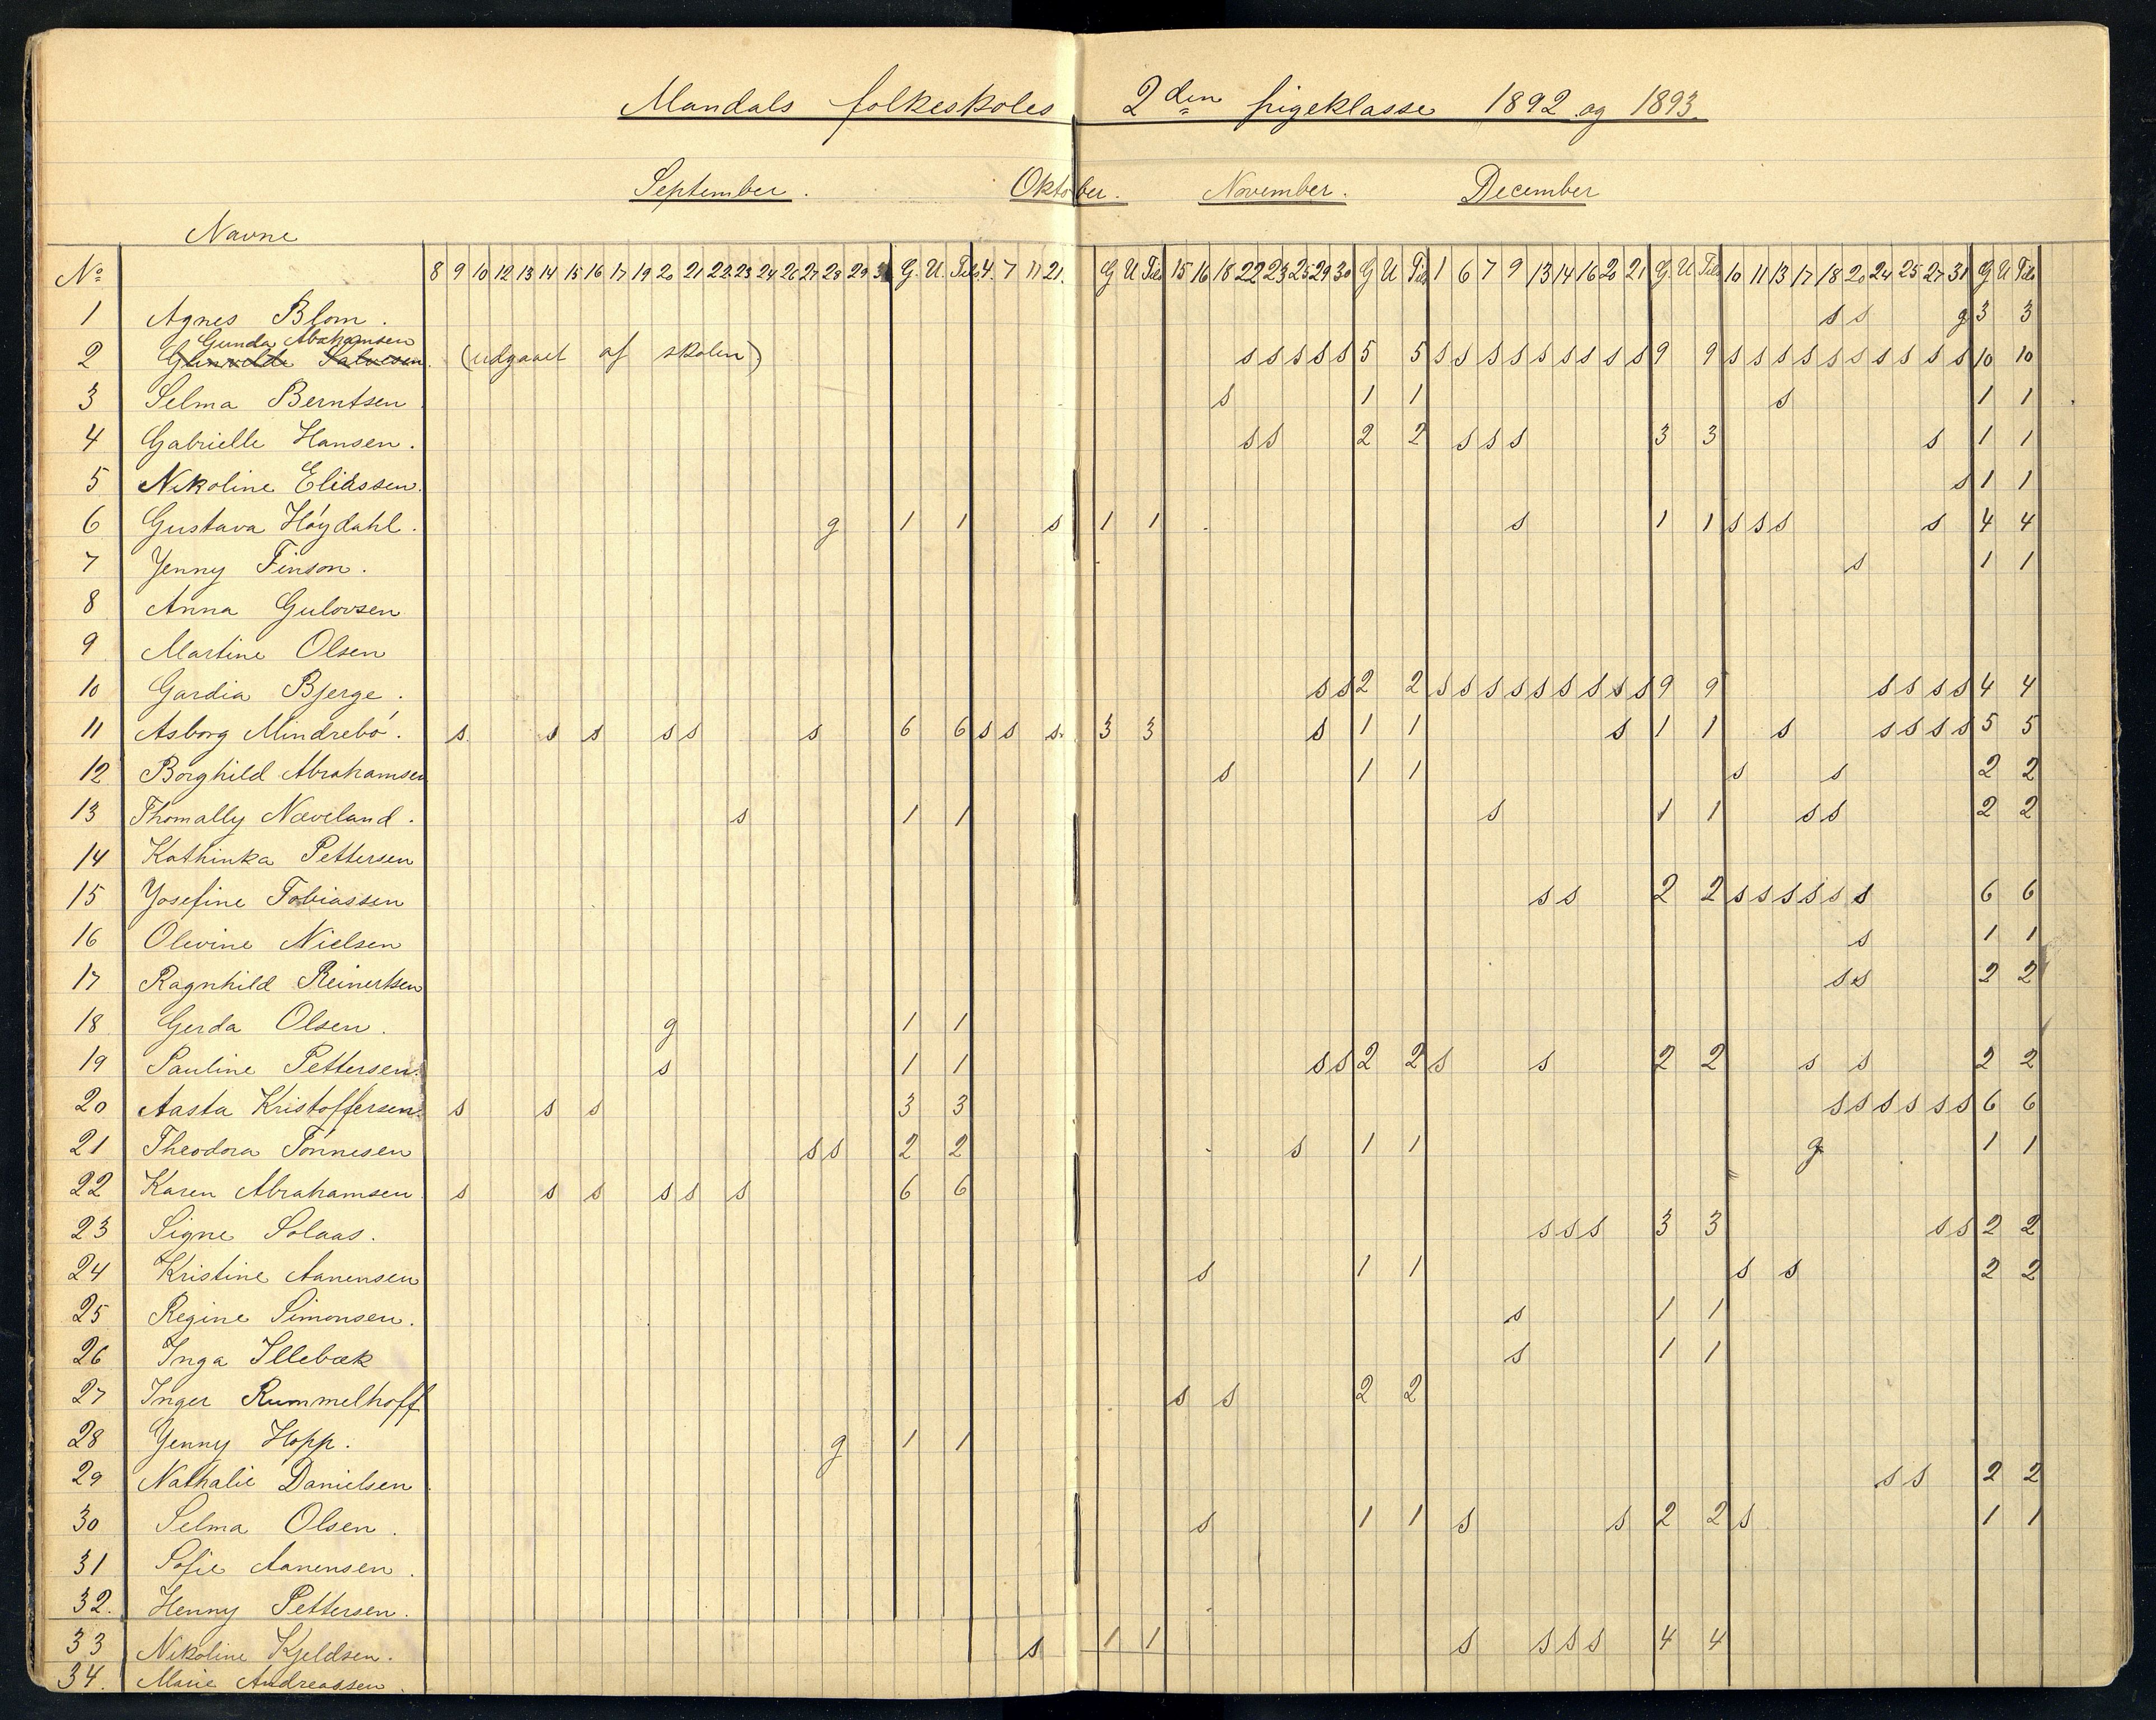 Mandals folkeskoles 2den pigeklasse 1892 og 1893.
September. Oktober. November. December
Navne
No 8 9 10 12 13 14 15 16 17 19 20 21 22 23 24 26 27 28 29 30 G. U. Tils 4. 7 11 21. G U Tils 15 16 18 22 23 25 29 30 G U Tils 1 6 7 9 13 14 16 20 21 G U Tils 10 11 13 17 18 20 24 25 27 31 G U Tils
1 Agnes Blom. s s g 3 3
Gunda Abrahamsen
2 Salvesen. (udgaaet af skolen) s s s s s 5 5 s s s s s s s s s 9 9 s s s s s s s s s s 10 10
3 Selma Berntsen. s 1 1 s 1 1
4 Gabrielle Hansen. s s 2 2 s s s 3 3 s 1 1
5 Nikoline Eliassen. s 1 1
6 Gustava Höydahl. g 1 1 s 1 1 s 1 1 s s s s 4 4
7 Jenny Finson. s 1 1
8 Anna Gulovsen
9 Martine Olsen
10 Gardia Bjerge. s s 2 2 s s s s s s s s s 9 9 s s s s 4 4
11 Asborg Mindrebö. s s s s s s 6 6 s s s. 3 3 s 1 1 s 1 1 s s s s s 5 5
12 Borghild Abrahamsen s 1 1 s s 2 2
13 Thomally Næveland. s 1 1 s 1 1 s s 2 2
14 Kathinka Pettersen
15 Josefine Tobiassen s s 2 2 s s s s s s 6 6
16 Olevine Nielsen s 1 1
17 Ragnhild Reinertsen s s 2 2
18 Gerda Olsen. g 1 1
19 Pauline Pettersen. s 1 1 s s 2 2 s s 2 2 s s 2 2
20 Aasta Kristoffersen. s s s 3 3 s s s s s s 6 6
21 Theodora Tönnesen s s 2 2 s 1 1 g 1 1
22 Karen Abrahamsen. s s s s s s 6 6
23 Signe Solaas. s s s 3 3 s s 2 2
24 Kristine Aanensen s 1 1 s s 2 2
25 Regine Simonsen. s 1 1
26 Inga Illebæk s 1 1
27 Inger Rummelhoff s s 2 2
28 Jenny Hopp. g 1 1
29 Nathalie Danielsen. s s 2 2
30 Selma Olsen. s 1 1 s s 2 2 s 1 1
31 Sofie Aanensen.
32. Henny Pettersen.
33 Nikoline Kjeldsen. s 1 1 s s s s 4 4
34. Marie Andreassen.